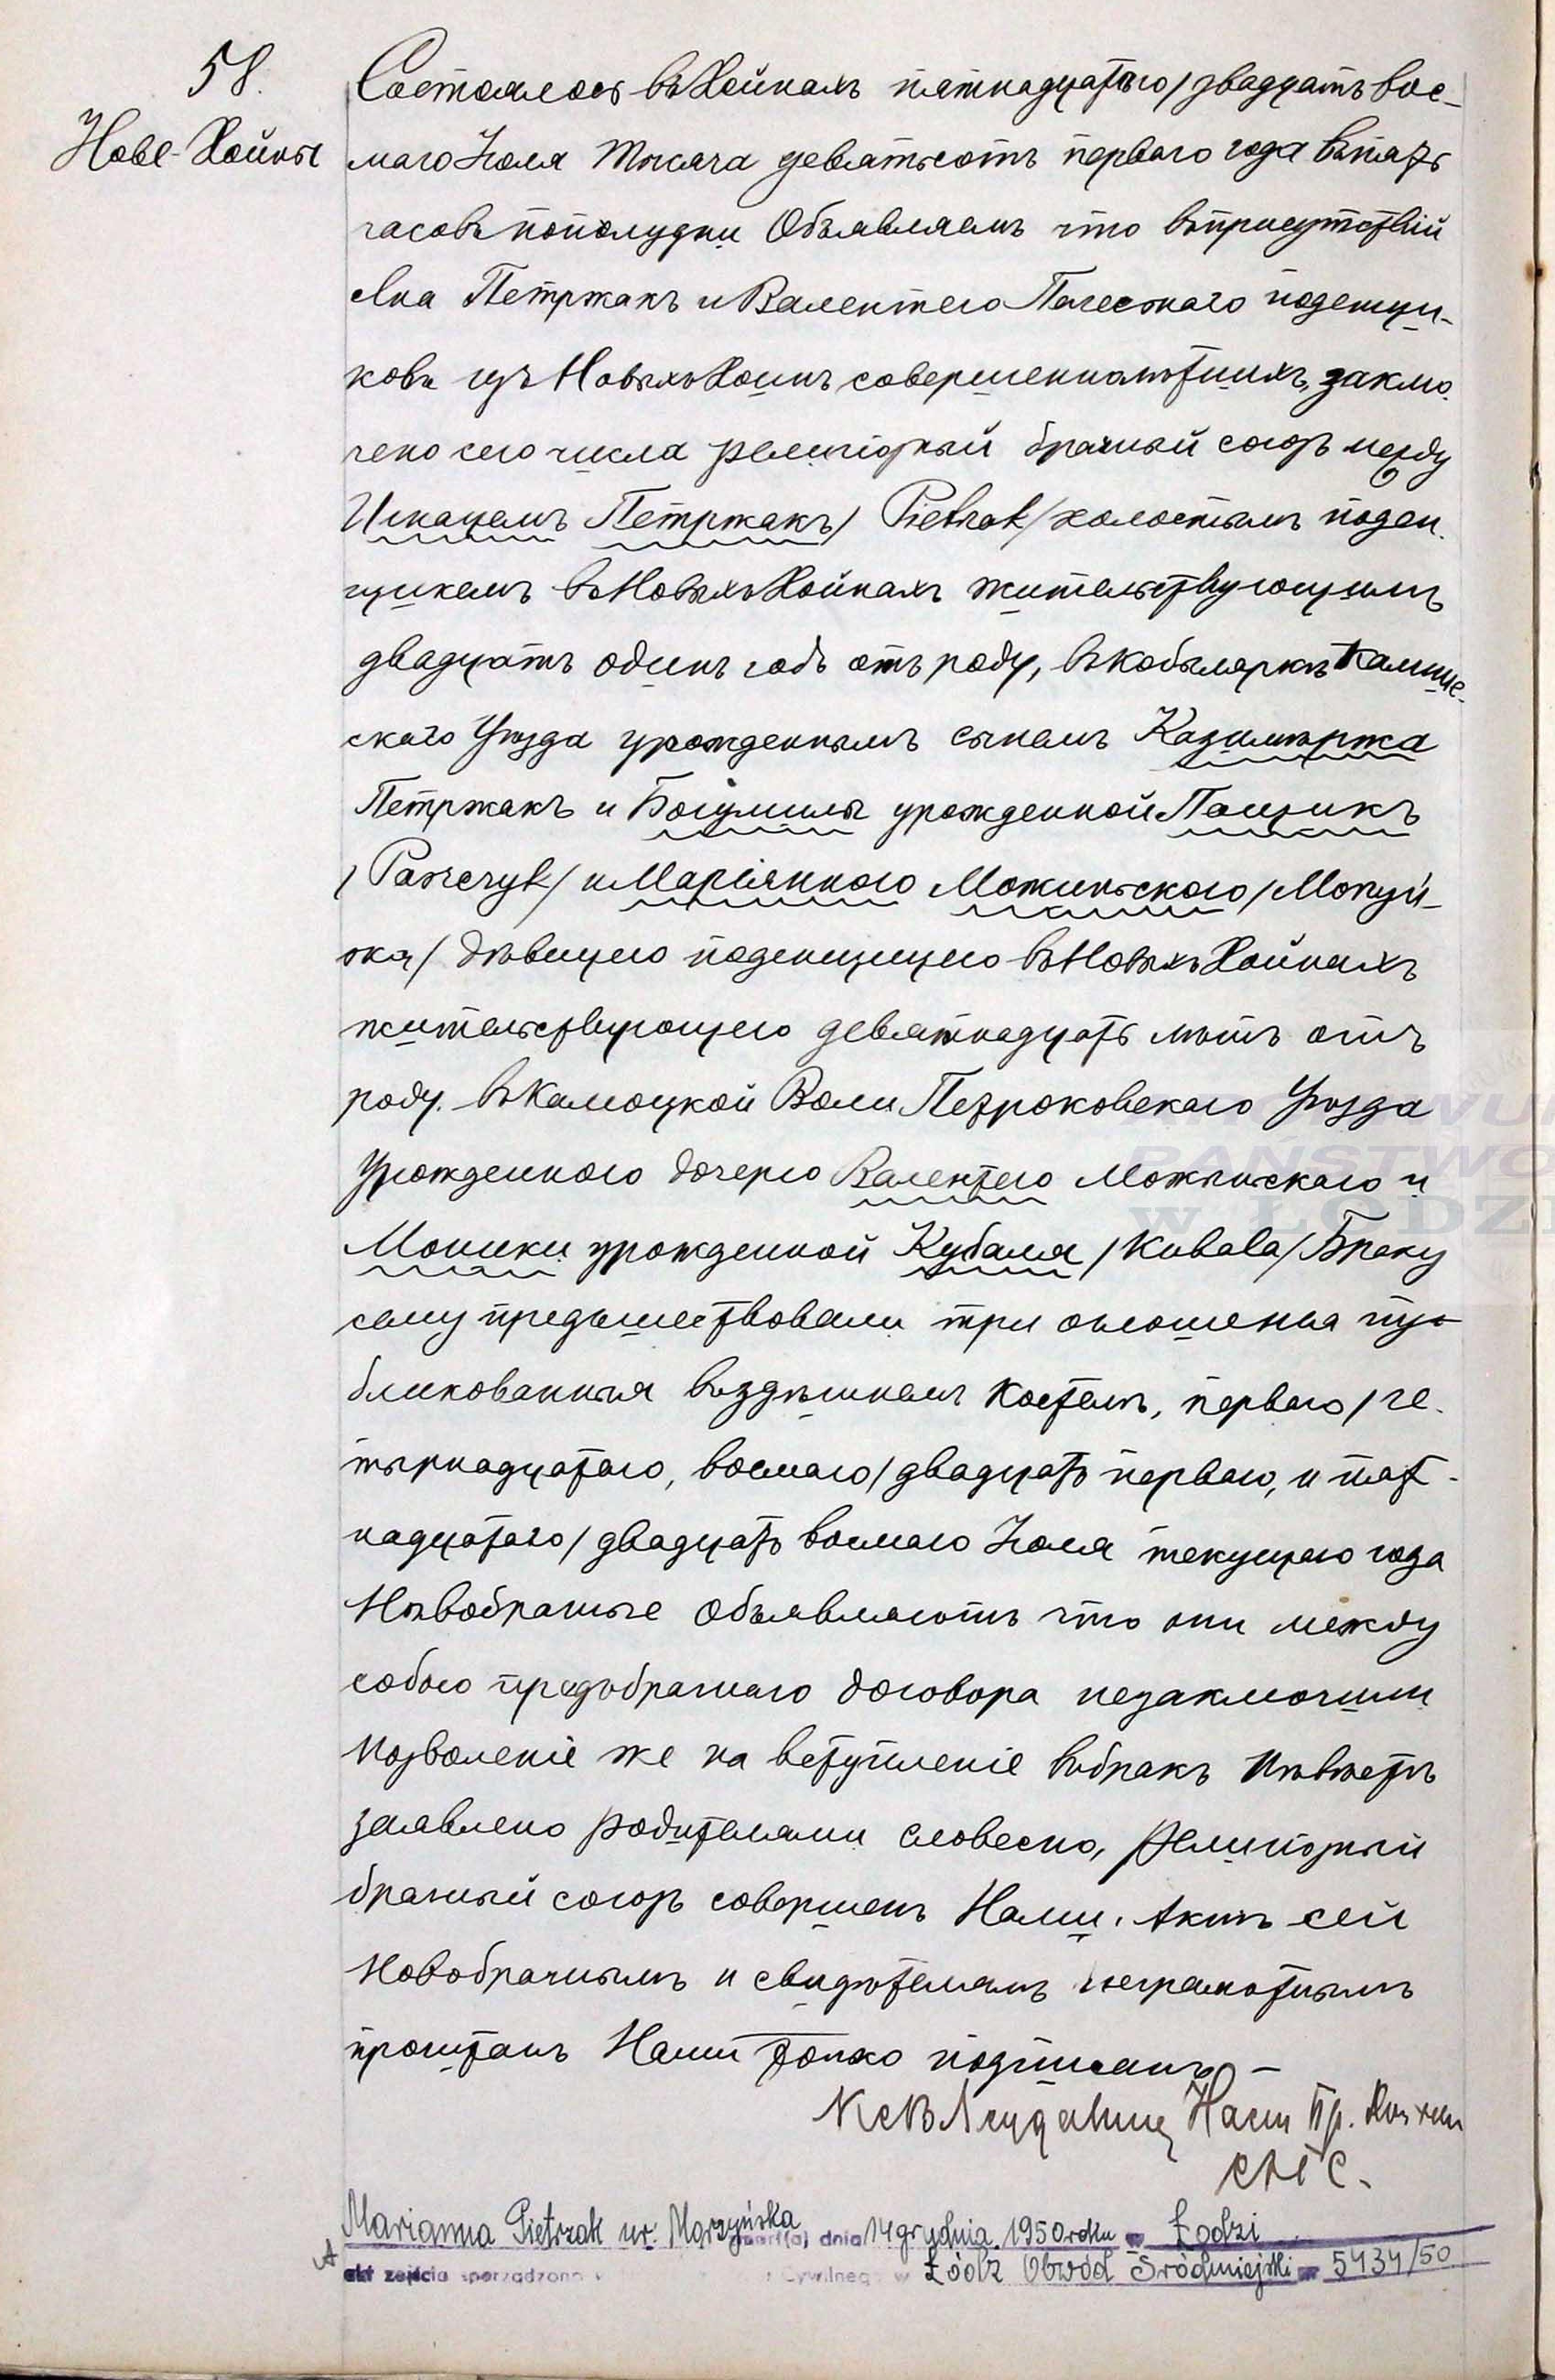 58.
Нове-Хойны
Состоялось въ Хойнахъ пятнадцатаго / двадцать вос-
маго Іюля тысяча девятьсотъ перваго года въ пять
часовъ пополудни Объявляемъ что въ присутствій
Яна Петржакъ и Валентего поденщи-
ковъ изъ Новыхъ Хоинъ совершеннолѣтнихъ, заклю
чено сего числа религіозный брачный союзъ между
Игнацемъ Петржакъ / Pietrzak / холостымъ поден
щикемъ въ Новыхъ Хойнахъ жительствующимъ
двадцать одинъ годъ отъ роду, въ Калише-
скаго Уѣзда урожденнымъ сынемъ Казимѣржа
Петржакъ и Богумилы урожденной Пащикъ
/ Paszczyk / и МаріянноюМожиньскою / Morzyń-
ska / дѣвицею поденщицею въ Новыхъ Хойнахъ
жительствующею девятнадцать лѣтъ отъ
роду. въ Камоцкой Воли Петроковскаго Уѣзда
Урожденною дочерю Валентего Можиньскаго и
Моники урожденной Кубаля / Kubala / Браку
сему предшествовали три оглошенія пу-
бликованныя въ здѣшнемъ Костелѣ, перваго / че-
тырнадцатаго, восмаго / двадцать перваго, и пят-
надцатаго / двадцать восмаго Іюля текущаго года
Новобрачные Объявляютъ что они между
собою предбрачнаго договора незаключили
Позволеніе же на вступленіе въ бракъ Невѣстѣ
заявлено родителями словесно, религіозный
брачный союзъ совершенъ Нами, Актъ сей
Новобрачнымъ и свидѣтелямъ неграмотнымъ
прочитанъ Нами только подписанъ —
Наст Пр. Хойны
Marianna Pietrzak ur. Morzyńska
zmarł(a) dnia 14 grudnia 1950 roku w Łodzi
akt zejścia sporządzono w Cywilnego w Łódź Obwód Śródmiejski nr 5434/50